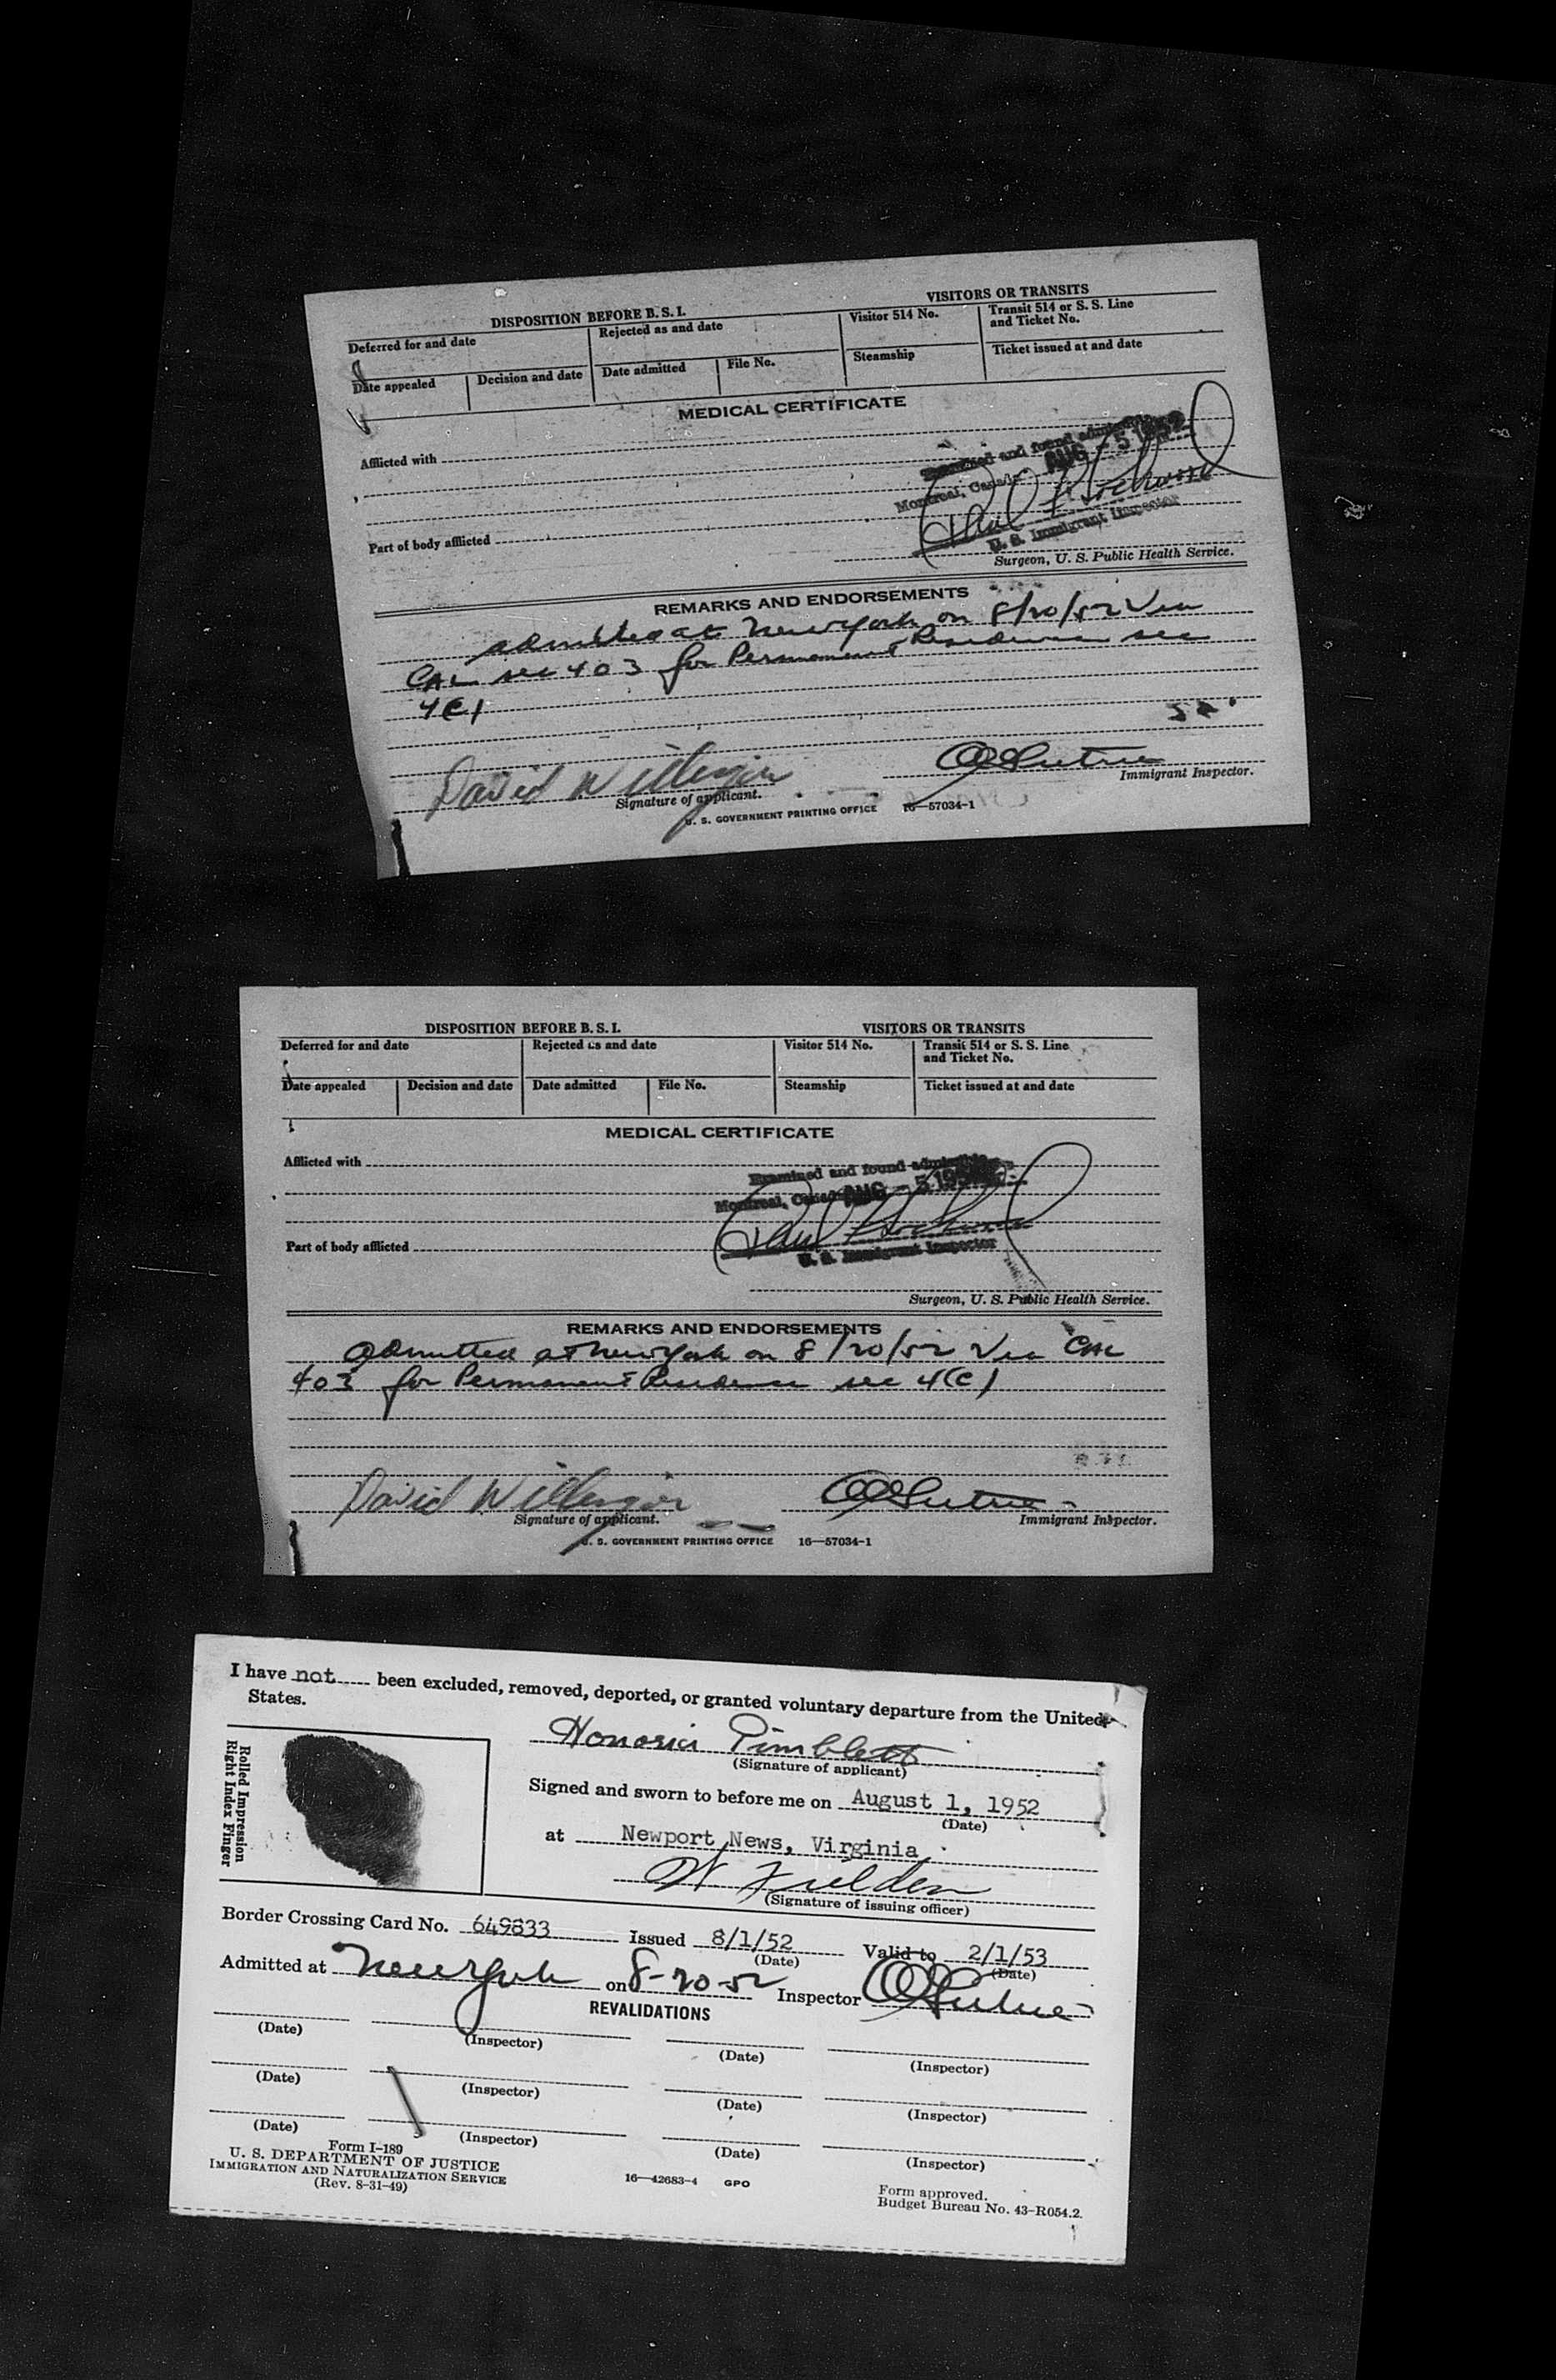 DISPOSITION BEFORE B. S. I.
VISITORS OR TRANSITS
Deferred for and date
Rejected as and date
Visitor 514 No.
Transit 514 or S. S. Line
and Ticket No.
Date appealed
Decision and date
Date admitted
File No.
Steamship
Ticket issued at and date
MEDICAL CERTIFICATE
Afflicted with
Examined and found admissible
Montreal, Canada AUG - 5 1952
Paul
Part of body afflicted
U. S. Immigrant Inspector
Surgeon, U. S. Public Health Service.
REMARKS AND ENDORSEMENTS
admitted at New York on 8/20/52 Via
CAL sec 403 for Permanent Residence sec
4(C)
David
Signature of applicant.
Immigrant Inspector.
U. S. GOVERNMENT PRINTING OFFICE 16—57034-1
DISPOSITION BEFORE B. S. I.
VISITORS OR TRANSITS
Deferred for and date
Rejected as and date
Visitor 514 No.
Transit 514 or S. S. Line
and Ticket No.
Date appealed
Decision and date
Date admitted
File No.
Steamship
Ticket issued at and date
MEDICAL CERTIFICATE
Afflicted with
Examined and found admissible
Montreal, Canada AUG - 5 1952
Paul
Part of body afflicted
U. S. Immigrant Inspector
Surgeon, U. S. Public Health Service.
REMARKS AND ENDORSEMENTS
admitted at New York on 8/20/52 Via CAL
403 for Permanent Residence sec 4(C)
David
Signature of applicant.
Immigrant Inspector.
U. S. GOVERNMENT PRINTING OFFICE 16—57034-1
I have not been excluded, removed, deported, or granted voluntary departure from the United
States.
Honoria Pimblett
(Signature of applicant)
Rolled Impression
Right Index Finger
Signed and sworn to before me on August 1, 1952
(Date)
at Newport News, Virginia
W Fielden
(Signature of issuing officer)
Border Crossing Card No. 649833 Issued 8/1/52 Valid to 2/1/53
(Date) (Date)
Admitted at New York on 8-20-52 Inspector
REVALIDATIONS
(Date) (Inspector) (Date) (Inspector)
(Date) (Inspector) (Date) (Inspector)
(Date) (Inspector) (Date) (Inspector)
Form I-189
U. S. DEPARTMENT OF JUSTICE
IMMIGRATION AND NATURALIZATION SERVICE
(Rev. 8-31-49)
16—42683-4 GPO
Form approved.
Budget Bureau No. 43-R054.2.